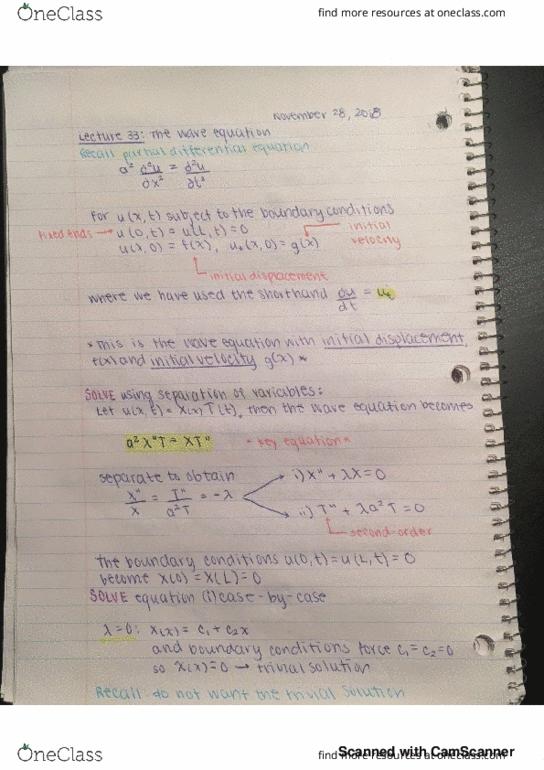 OneClass
find more resources at oneclass.com
November 28, 2018
Lecture 33: The wave equation
Recall partial differential equation
a² ∂²u/∂x² = ∂²u/∂t²
for u(x,t) subject to the boundary conditions
fixed ends → u(0,t) = u(L,t) = 0
initial velocity
u(x,0) = f(x), u_t(x,0) = g(x)
initial displacement
where we have used the shorthand ∂u/∂t = u_t
* This is the wave equation with initial displacement,
f(x) and initial velocity g(x) *
SOLVE using separation of variables:
Let u(x,t) = X(x)T(t), then the wave equation becomes
a²X"T = XT" *key equation*
separate to obtain
X"/X = T"/a²T = -λ
i) X" + λX = 0
ii) T" + λa²T = 0
second-order
the boundary conditions u(0,t) = u(L,t) = 0
become X(0) = X(L) = 0
SOLVE equation (i) case-by-case
λ=0: X(x) = C₁ + C₂x
and boundary conditions force C₁ = C₂ = 0
so X(x) = 0 → trivial solution
Recall: do not want the trivial solution
OneClass
find more resources at oneclass.com
Scanned with CamScanner